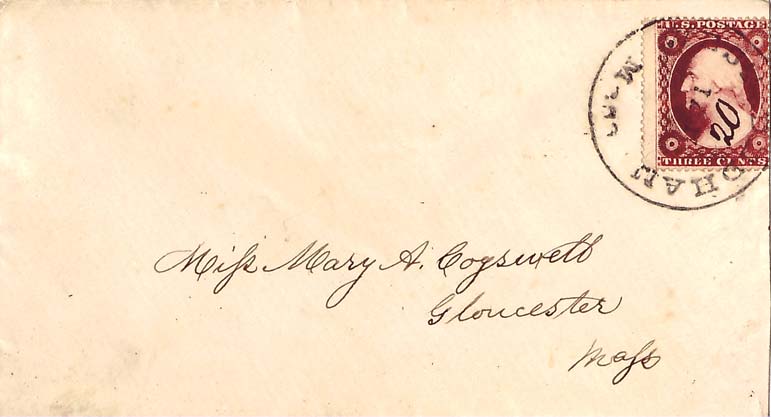 U.S. POSTAGE
20
THREE CENTS
Miſs Mary A. Cogswell
Gloucester
Maſs